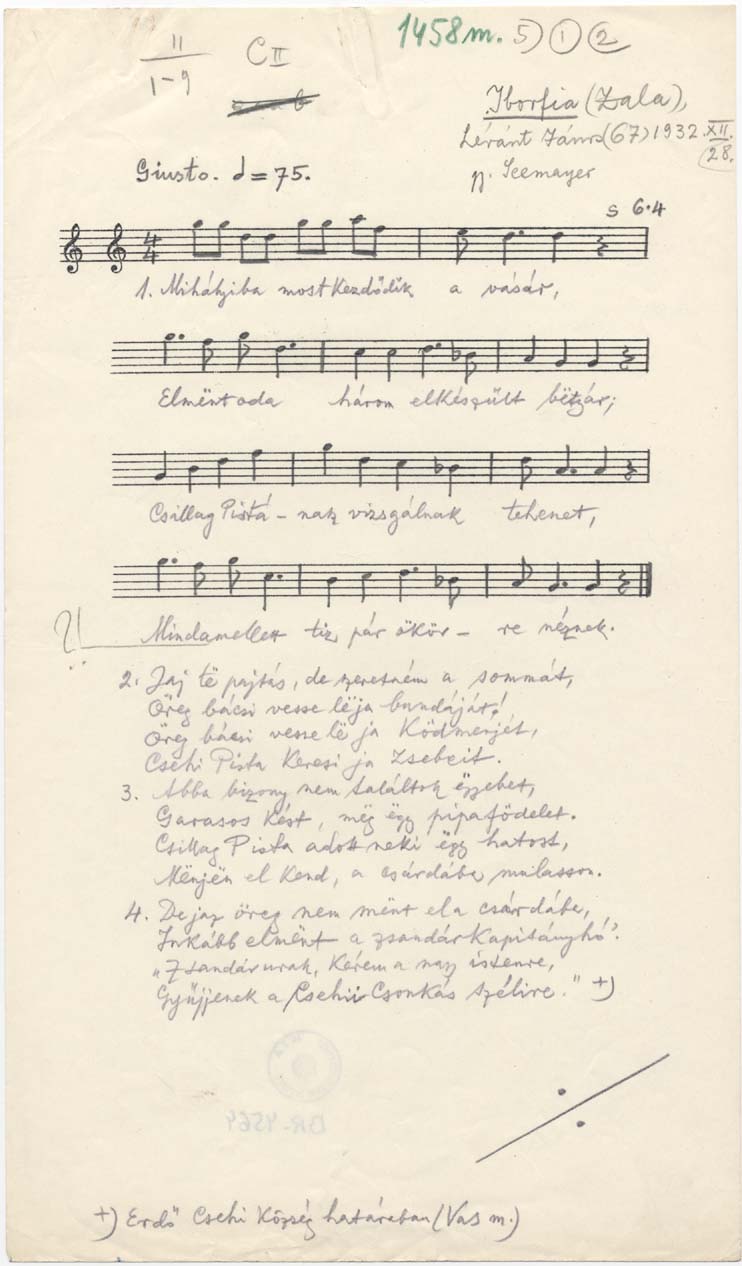 1458m. 5) 1 2
11
1-9
C II
Iborfia (Zala),
Léránt János (67) 1932. XII. 28.
gy. Seemayer
Giusto. = 75.
s 6.4
4 4
1. Mihályiba most kezdődik a vásár,
Elmënt oda három elkészűlt bëtyár;
Csillag Pistá - nak vizsgálnak tehenet,
Mindamellett tiz pár ökör - re néznek.
2. Jaj të pajtás, de szeretném a sommát,
Öreg bácsi vesse lëja bundáját!
Öreg bácsi vesse lë ja Ködmenjét,
Csehi Pista Keresi ja Zsebeit.
3. Abba bizony nem találtok ëgyebet,
Garasos Kést, még ëgy pipafödelet.
Csillag Pista adott neki ëgy hatost,
Mënjën el Kend, a csárdába mulasson.
4. De jaz öreg nem mënt el a csárdába,
Inkább elmënt a zsandárkapitányhó.
"Zsandárurak, Kérem a nagy istenre,
Gyűjjenek a Csehi Csonkás szélire." +)
BR-4564
+) Erdő Csehi Község határában (Vas m.)